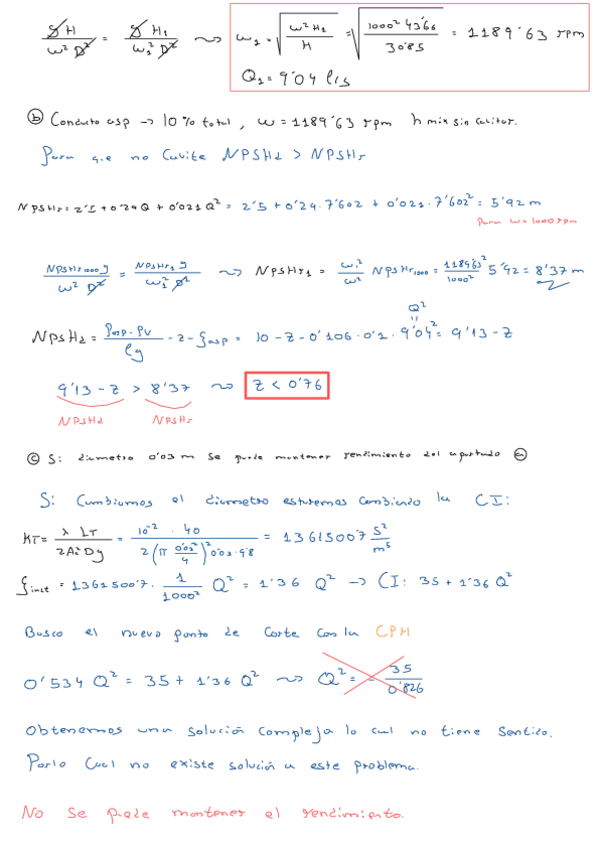 gH / ω² D² = gH₁ / ω₁² D² ⇝ ω₁ = √(ω² H₁ / H) = √(1000² 43'66 / 30'85) = 1189'63 rpm
Q₁ = 9'04 l/s
ⓑ Conducto asp → 10% total, ω = 1189'63 rpm h max sin cavitar.
Para que no Cavite NPSHd > NPSHr
NPSHr = 2'5 + 0'24 Q + 0'021 Q² = 2'5 + 0'24 · 7'602 + 0'021 · 7'602² = 5'42 m
Para ω = 1000 rpm
NPSHr1000 g / ω² D² = NPSHr1 g / ω₁² D² ⇝ NPSHr1 = ω₁² / ω² NPSHr1000 = 1189'63² / 1000² 5'42 = 8'37 m
Q²
NPSHd = (Pasp - Pv) / ρg - z - ξasp = 10 - z - 0'106 · 0'1 · 9'04² = 9'13 - z
9'13 - z > 8'37 ⇝ z < 0'76
NPSHd NPSHr
ⓒ Si diametro 0'03 m se puede mantener rendimiento del apartado ⓐ
Si Cambiamos el diametro estaremos cambiando la CI:
KT = λ LT / 2A² D g = 10⁻² · 40 / 2 (π 0'03² / 4)² 0'03 · 9'8 = 1361500'7 s² / m⁵
ξinst = 1361500'7 · 1 / 1000² Q² = 1'36 Q² → CI: 35 + 1'36 Q²
Busco el nuevo punto de Corte con la CPH
0'534 Q² = 35 + 1'36 Q² ⇝ Q² = - 35 / 0'826
Obtenemos una solución compleja lo cual no tiene Sentido.
Por lo Cual no existe solución a este problema.
No Se puede mantener el rendimiento.